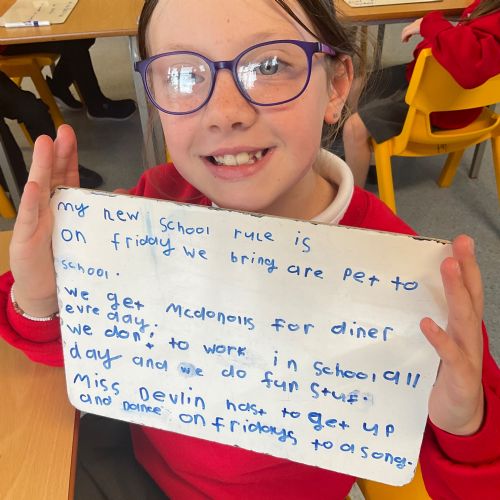 my new school rule is
on friday we bring are pet to
school.
we get mcdonolls for diner
evre day.
we don't to work in school all
day and we do fun stuf.
Miss Devlin hast to get up
and dance on fridays to a song.